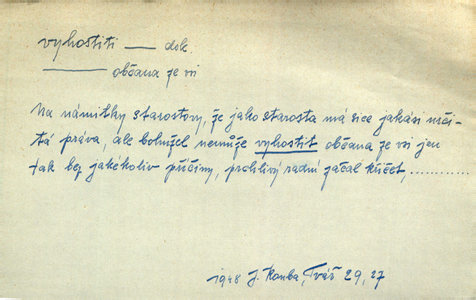 vyhostiti —— dok.
—— občana ze vsi
Na námitky starostovy, že jako starosta má sice jakási urči-
tá práva, ale bohužel nemůže vyhostit občana ze vsi jen
tak bez jakékoliv příčiny, prchlivý radní začal křičet, ............
1948 J. Kouba, Tváš 29, 27